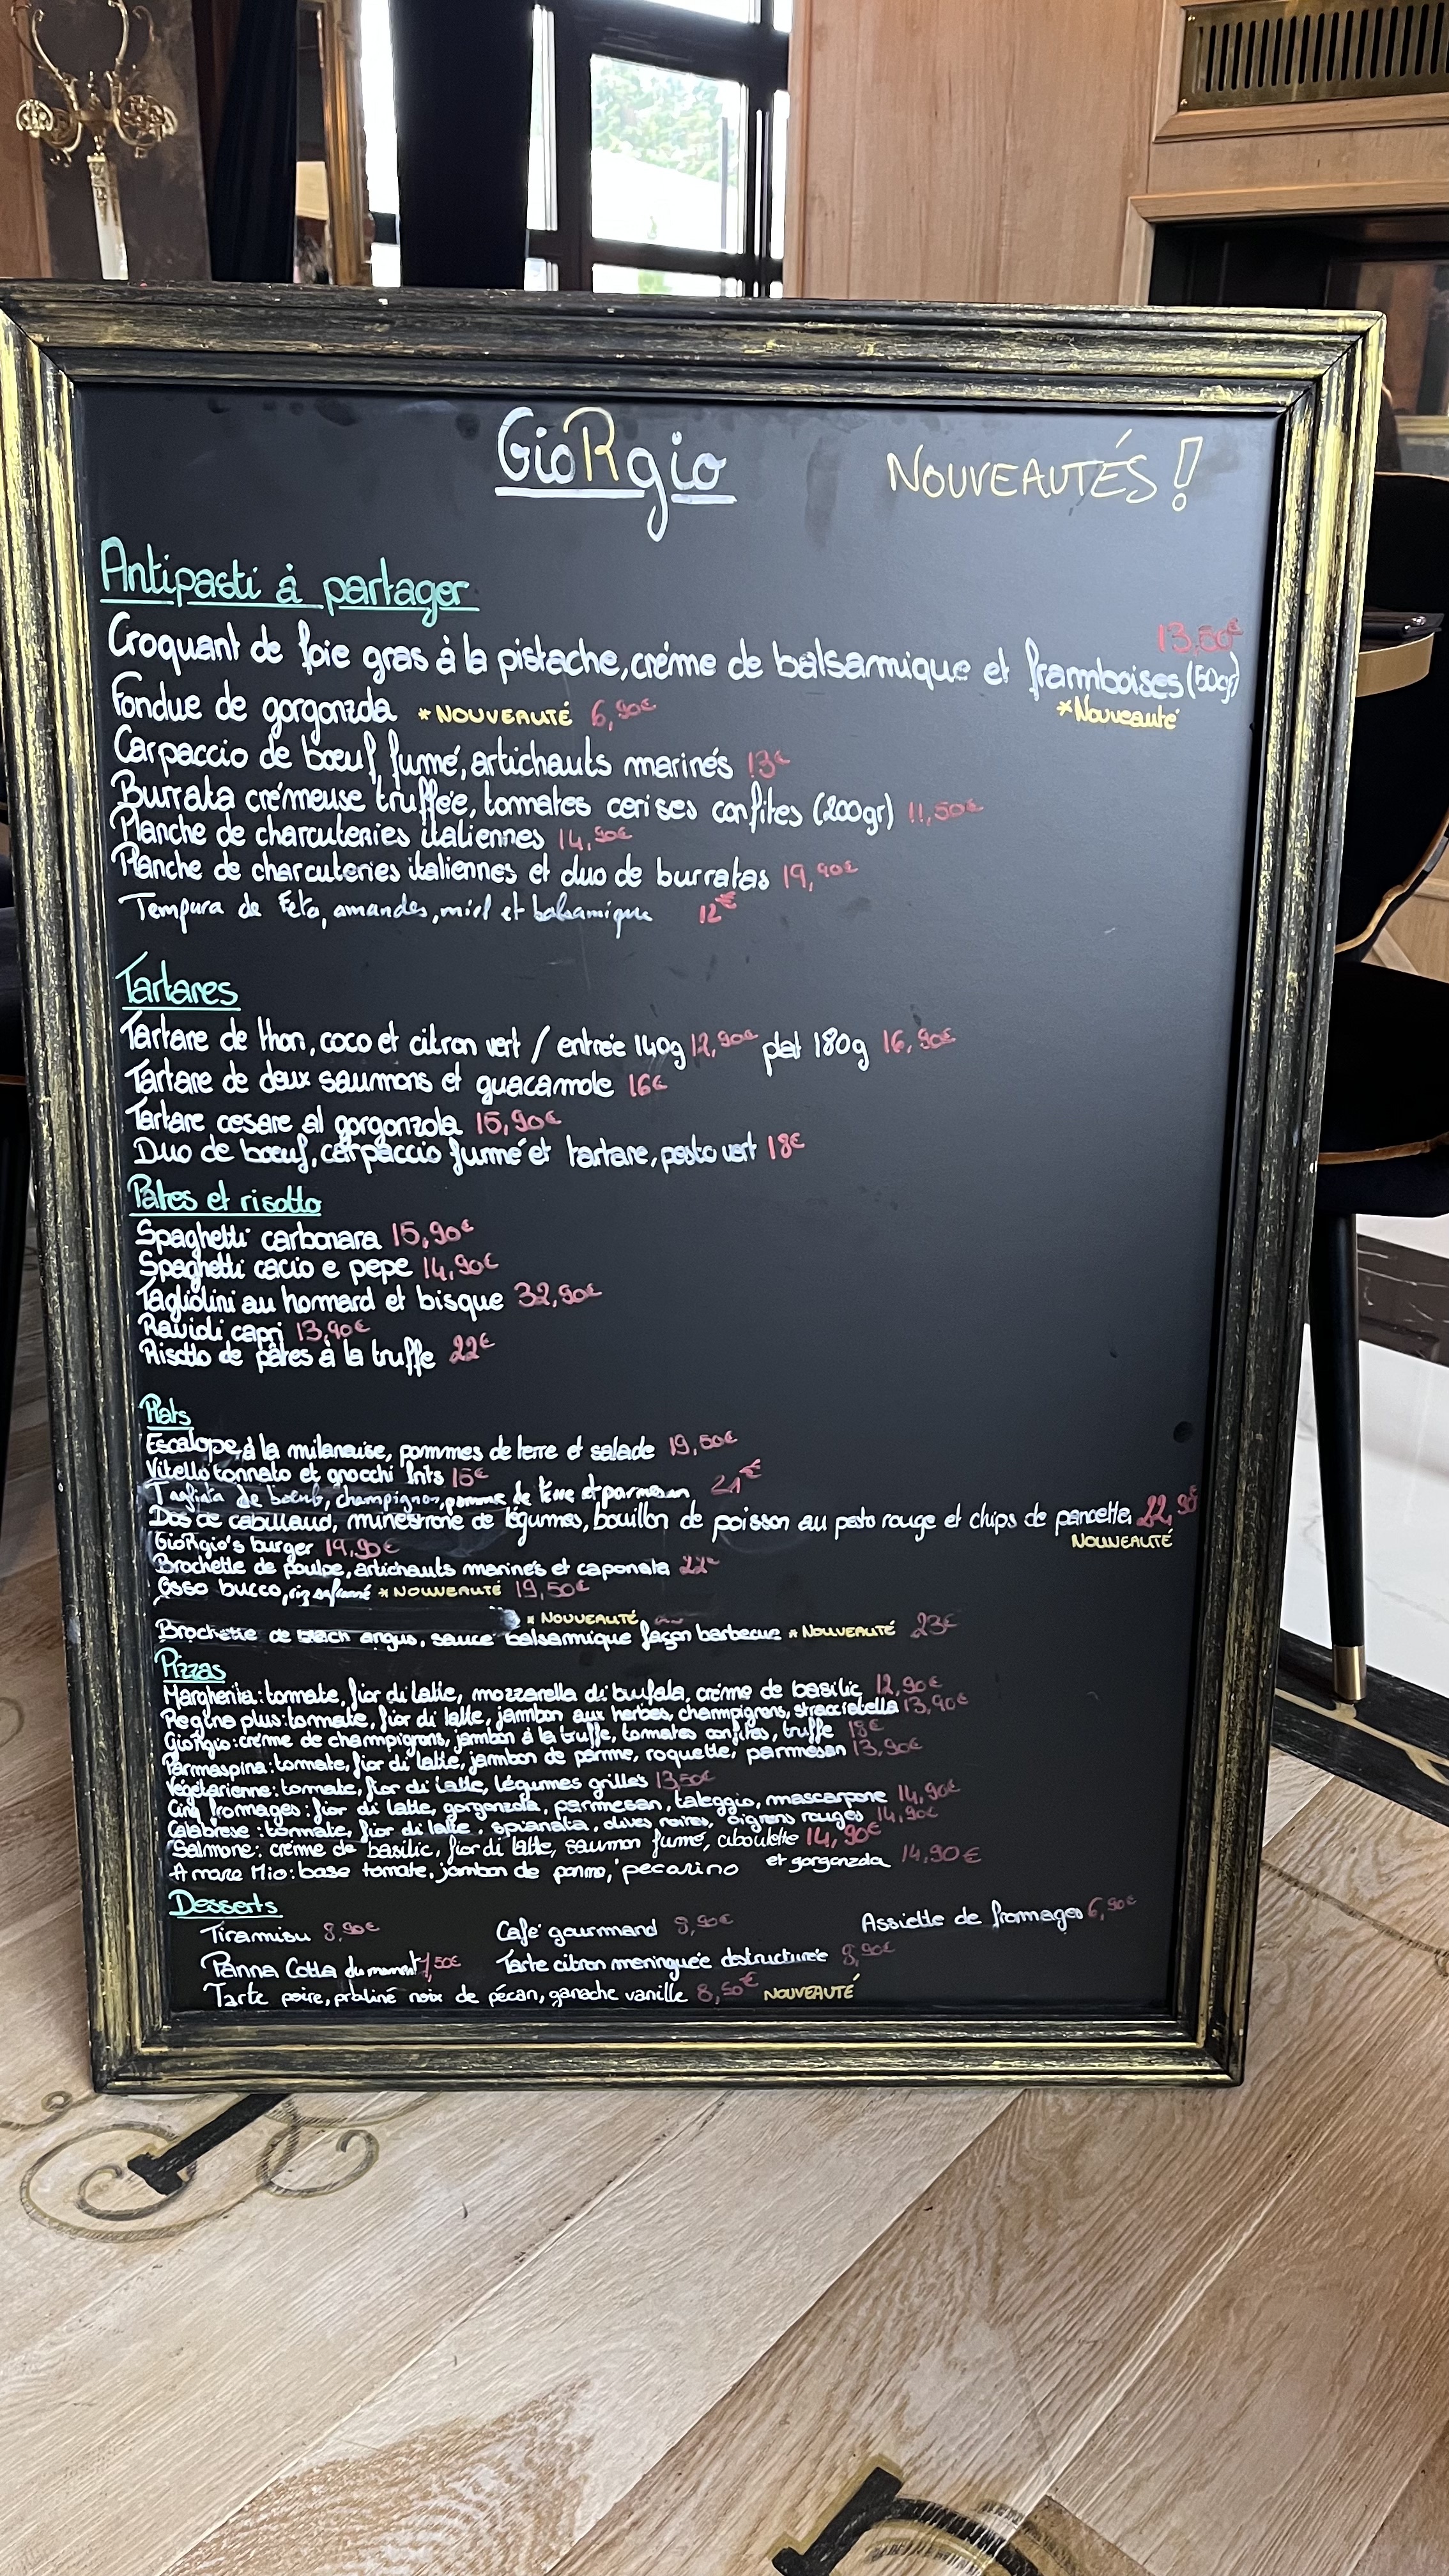 GioRgio
NOUVEAUTÉS !
Antipasti à partager
13,50€
Croquant de foie gras à la pistache, crème de balsamique et framboises (50gr)
*Nouveauté
Fondue de gorgonzola *NOUVEAUTÉ 6,90€
Carpaccio de bœuf fumé, artichauts marinés 13€
Burrata crémeuse truffée, tomates cerises confites (200gr) 11,50€
Planche de charcuteries italiennes 14,90€
Planche de charcuteries italiennes et duo de burratas 19,90€
Tempura de Feta, amandes, miel et balsamique 12€
Tartares
Tartare de thon, coco et citron vert / entrée 140g 12,90€ plat 180g 16,90€
Tartare de deux saumons et guacamole 16€
Tartare cesare al gorgonzola 15,90€
Duo de bœuf, carpaccio fumé et tartare, pesto vert 18€
Pâtes et risotto
Spaghetti carbonara 15,90€
Spaghetti cacio e pepe 14,90€
Tagliolini au homard et bisque 32,90€
Ravioli capri 13,90€
Risotto de pâtes à la truffe 22€
Plats
Escalope à la milanaise, pommes de terre et salade 19,50€
Vitello tonnato et gnocchi frits 16€
Tagliata de bœuf, champignon, pomme de terre et parmesan 21€
Dos de cabillaud, minestrone de légumes, bouillon de poisson au pesto rouge et chips de pancetta 22,90€
NOUVEAUTÉ
GioRgio's burger 19,90€
Brochette de poulpe, artichauts marinés et caponata 22€
Osso bucco, riz safrané *NOUVEAUTÉ 19,50€
*NOUVEAUTÉ
Brochette de black angus, sauce balsamique façon barbecue *NOUVEAUTÉ 23€
Pizzas
Margherita: tomate, fior di latte, mozzarella di bufala, crème de basilic 12,90€
Regina plus: tomate, fior di latte, jambon aux herbes, champignons, stracciatella 13,90€
GioRgio: crème de champignons, jambon à la truffe, tomates confites, truffe 18€
Parmaspina: tomate, fior di latte, jambon de parme, roquette, parmesan 13,90€
Végétarienne: tomate, fior di latte, légumes grillés 13,50€
Cinq fromages: fior di latte, gorgonzola, parmesan, taleggio, mascarpone 14,90€
Calabrese: tomate, fior di latte, spianata, olives noires, oignons rouges 14,90€
Salmone: crème de basilic, fior di latte, saumon fumé, ciboulette 14,90€
Amare Mio: base tomate, jambon de parme, pecorino et gorgonzola 14,90€
Desserts
Tiramisu 8,90€ Café gourmand 9,90€ Assiette de fromages 6,90€
Panna Cotta du moment 7,50€ Tarte citron meringuée destructurée 8,90€
Tarte poire, praliné noix de pécan, ganache vanille 8,50€ NOUVEAUTÉ